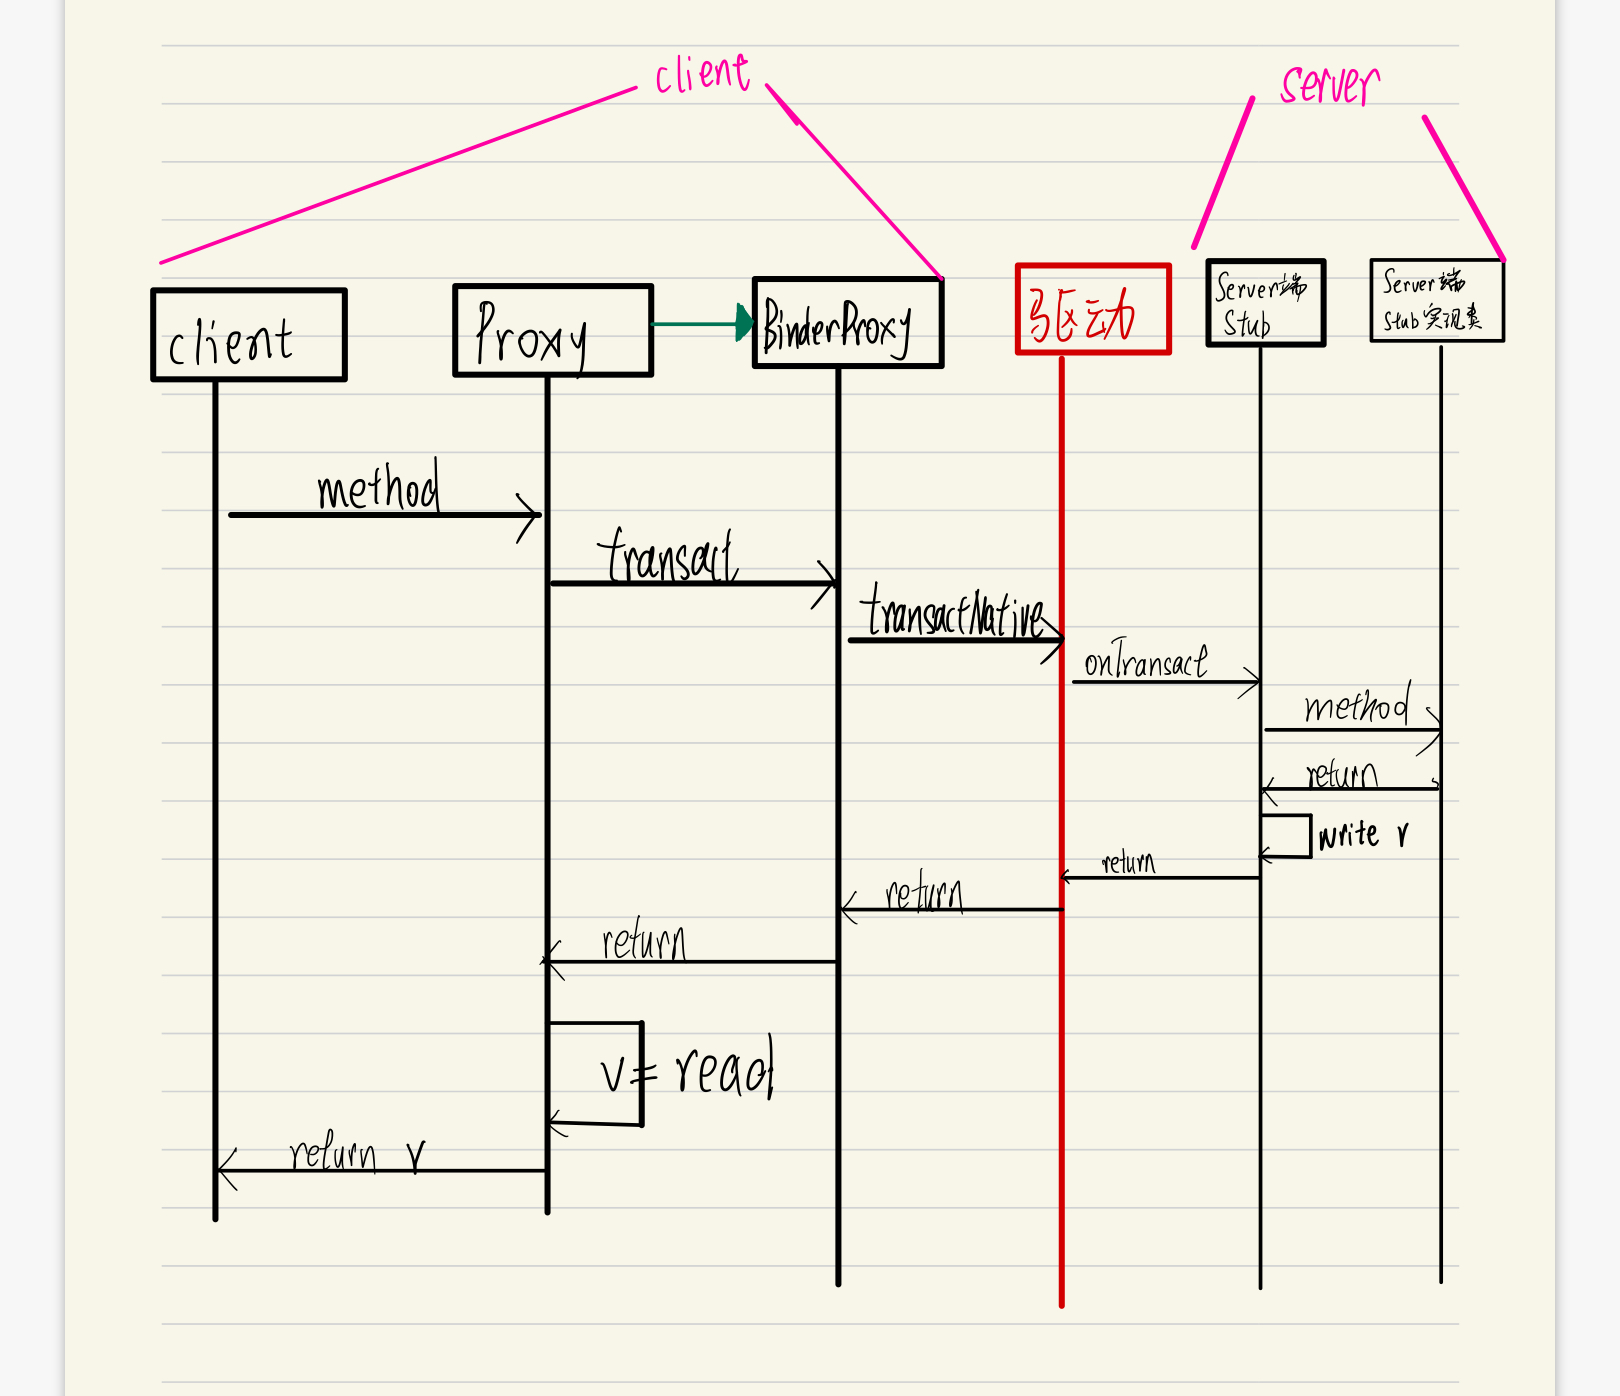 client
server
client
Proxy
BinderProxy
驱动
Server端
Stub
Server端
Stub实现类
method
transact
transactNative
onTransact
method
return
write r
return
return
return
v = read
return v